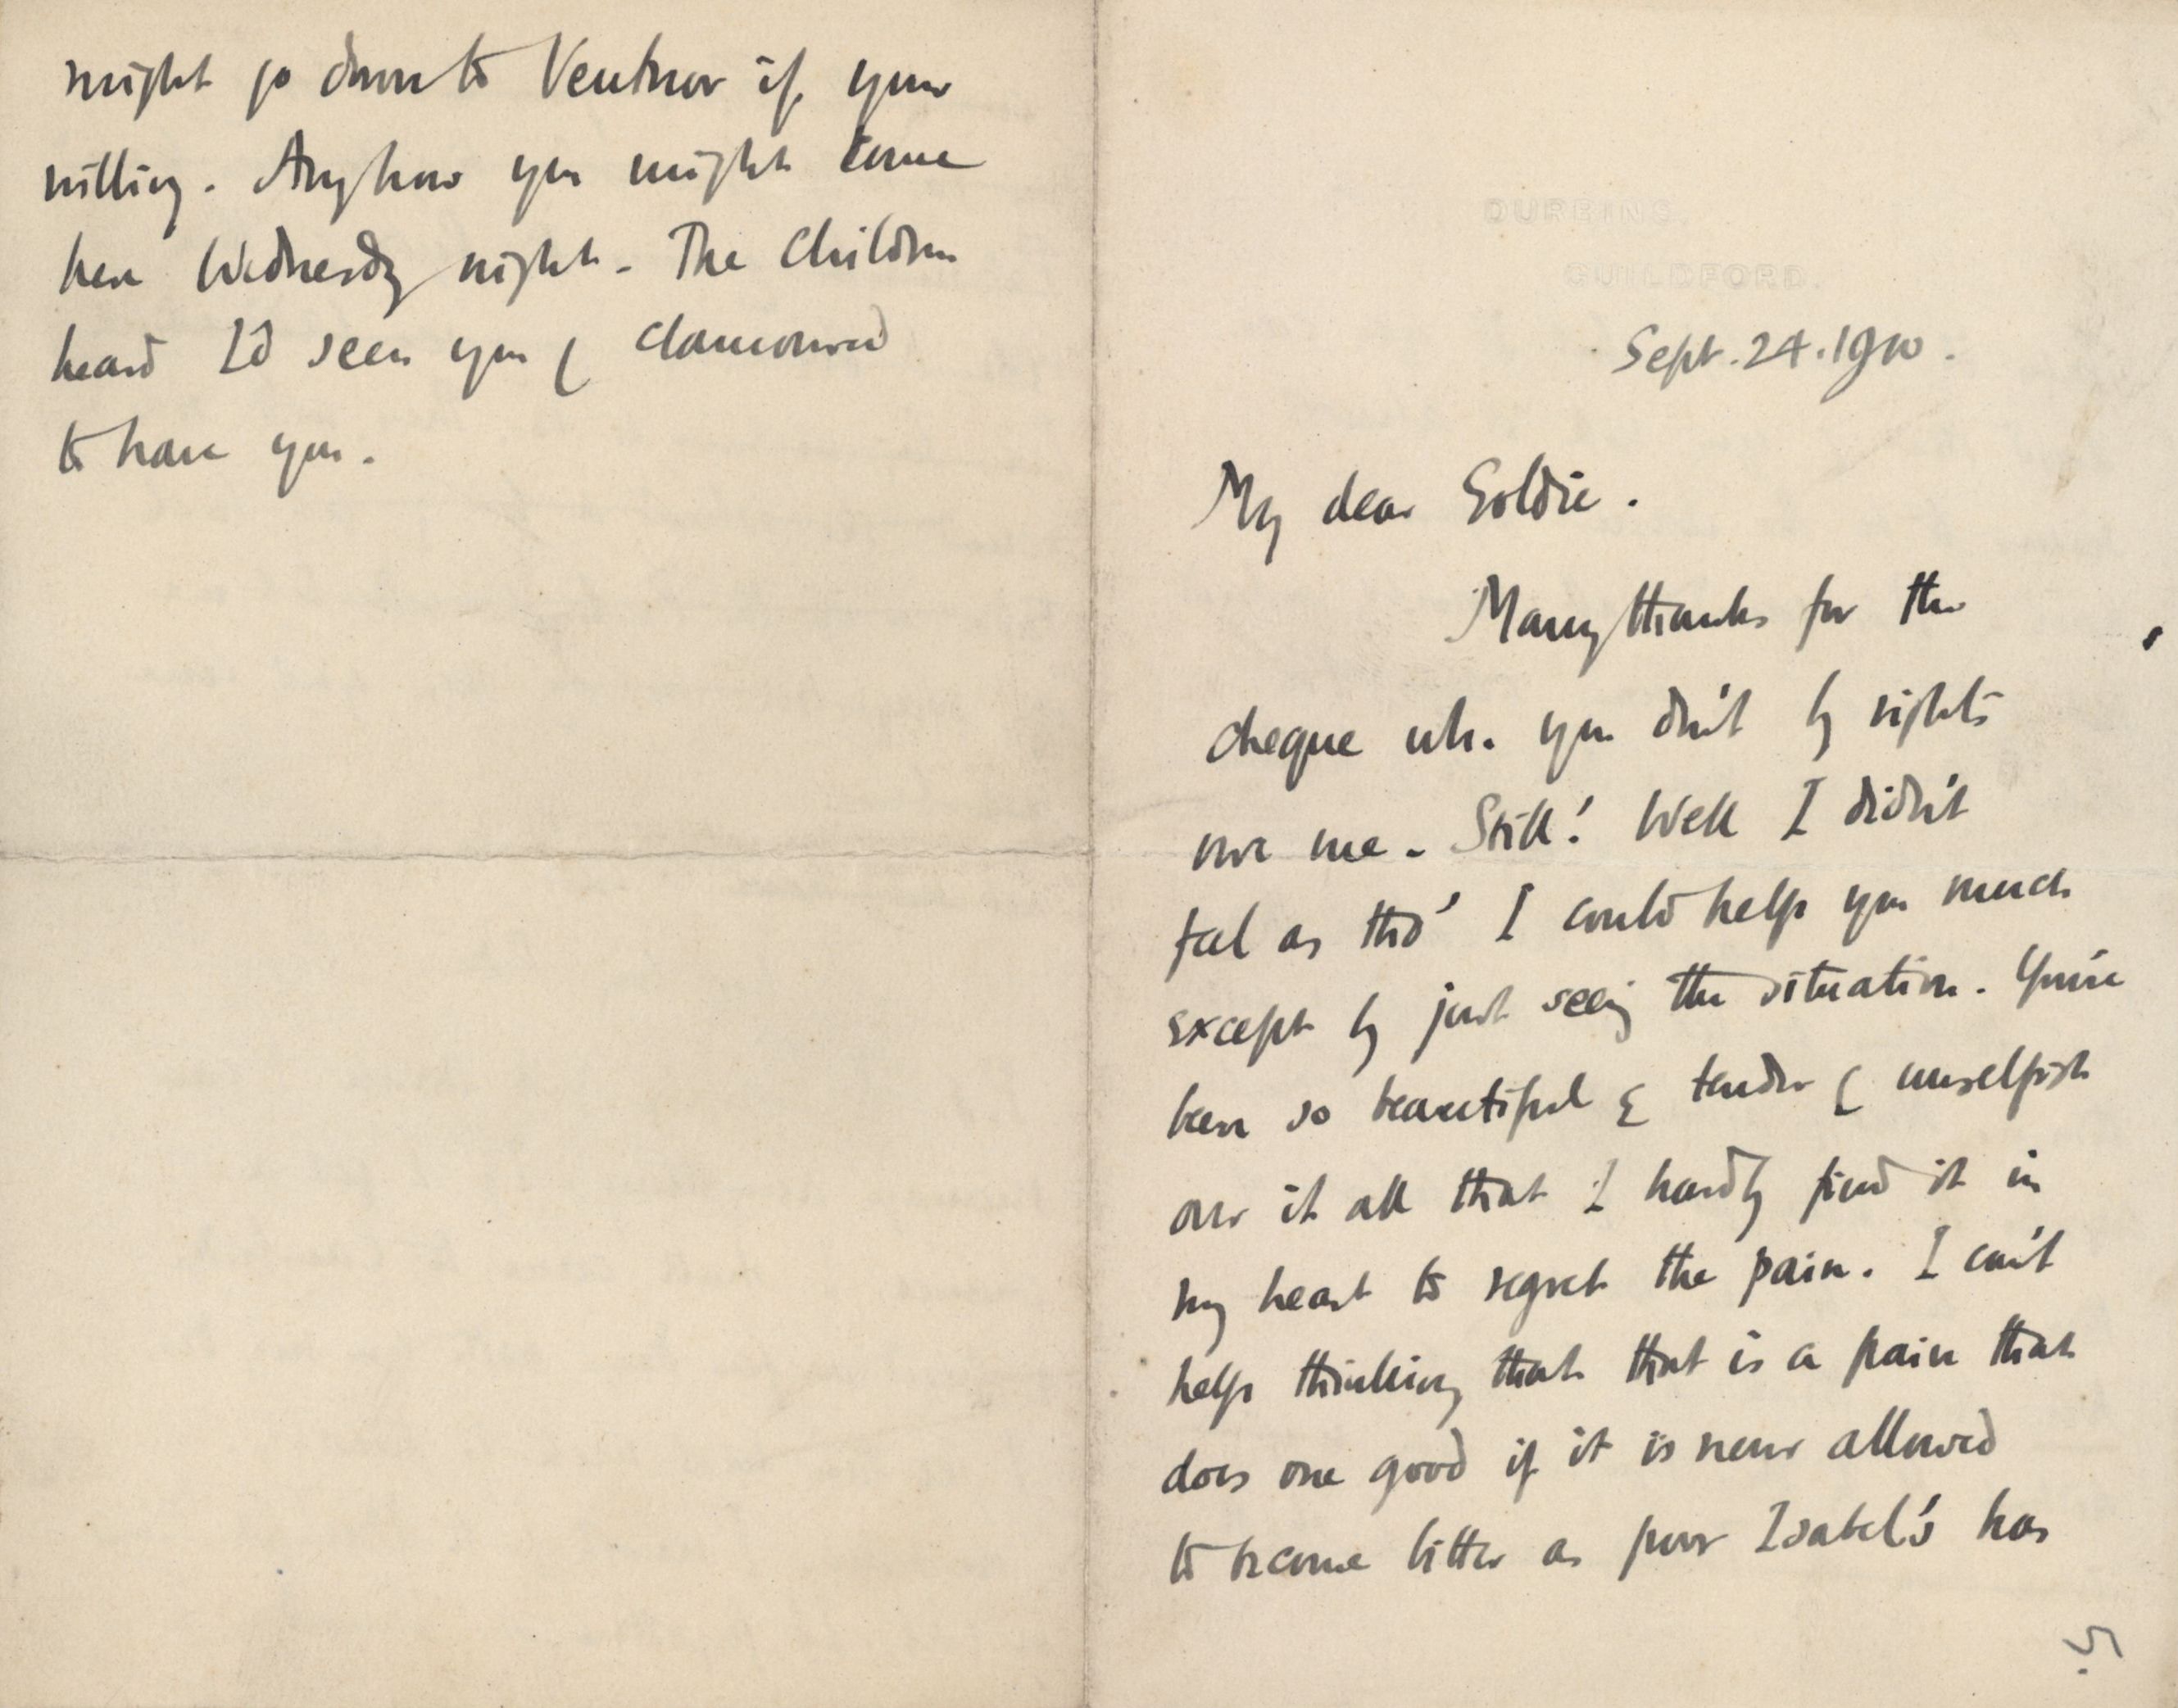 might go down to Ventnor if your
willing. Anyhow you might come
here Wednesday night. The Children
heard I'd seen you & clamoured
to have you.
DURBINS.
GUILDFORD.
Sept. 24. 1910.
My dear Goldie.
Many thanks for the
cheque wh. you don't by rights
owe me. Still! Well I didn't
feel as tho' I could help you much
except by just seeing the situation. You've
been so beautiful & tender & unselfish
over it all that I hardly find it in
my heart to regret the pain. I can't
help thinking that that is a pain that
does one good if it is never allowed
to become bitter as poor Isabel's has